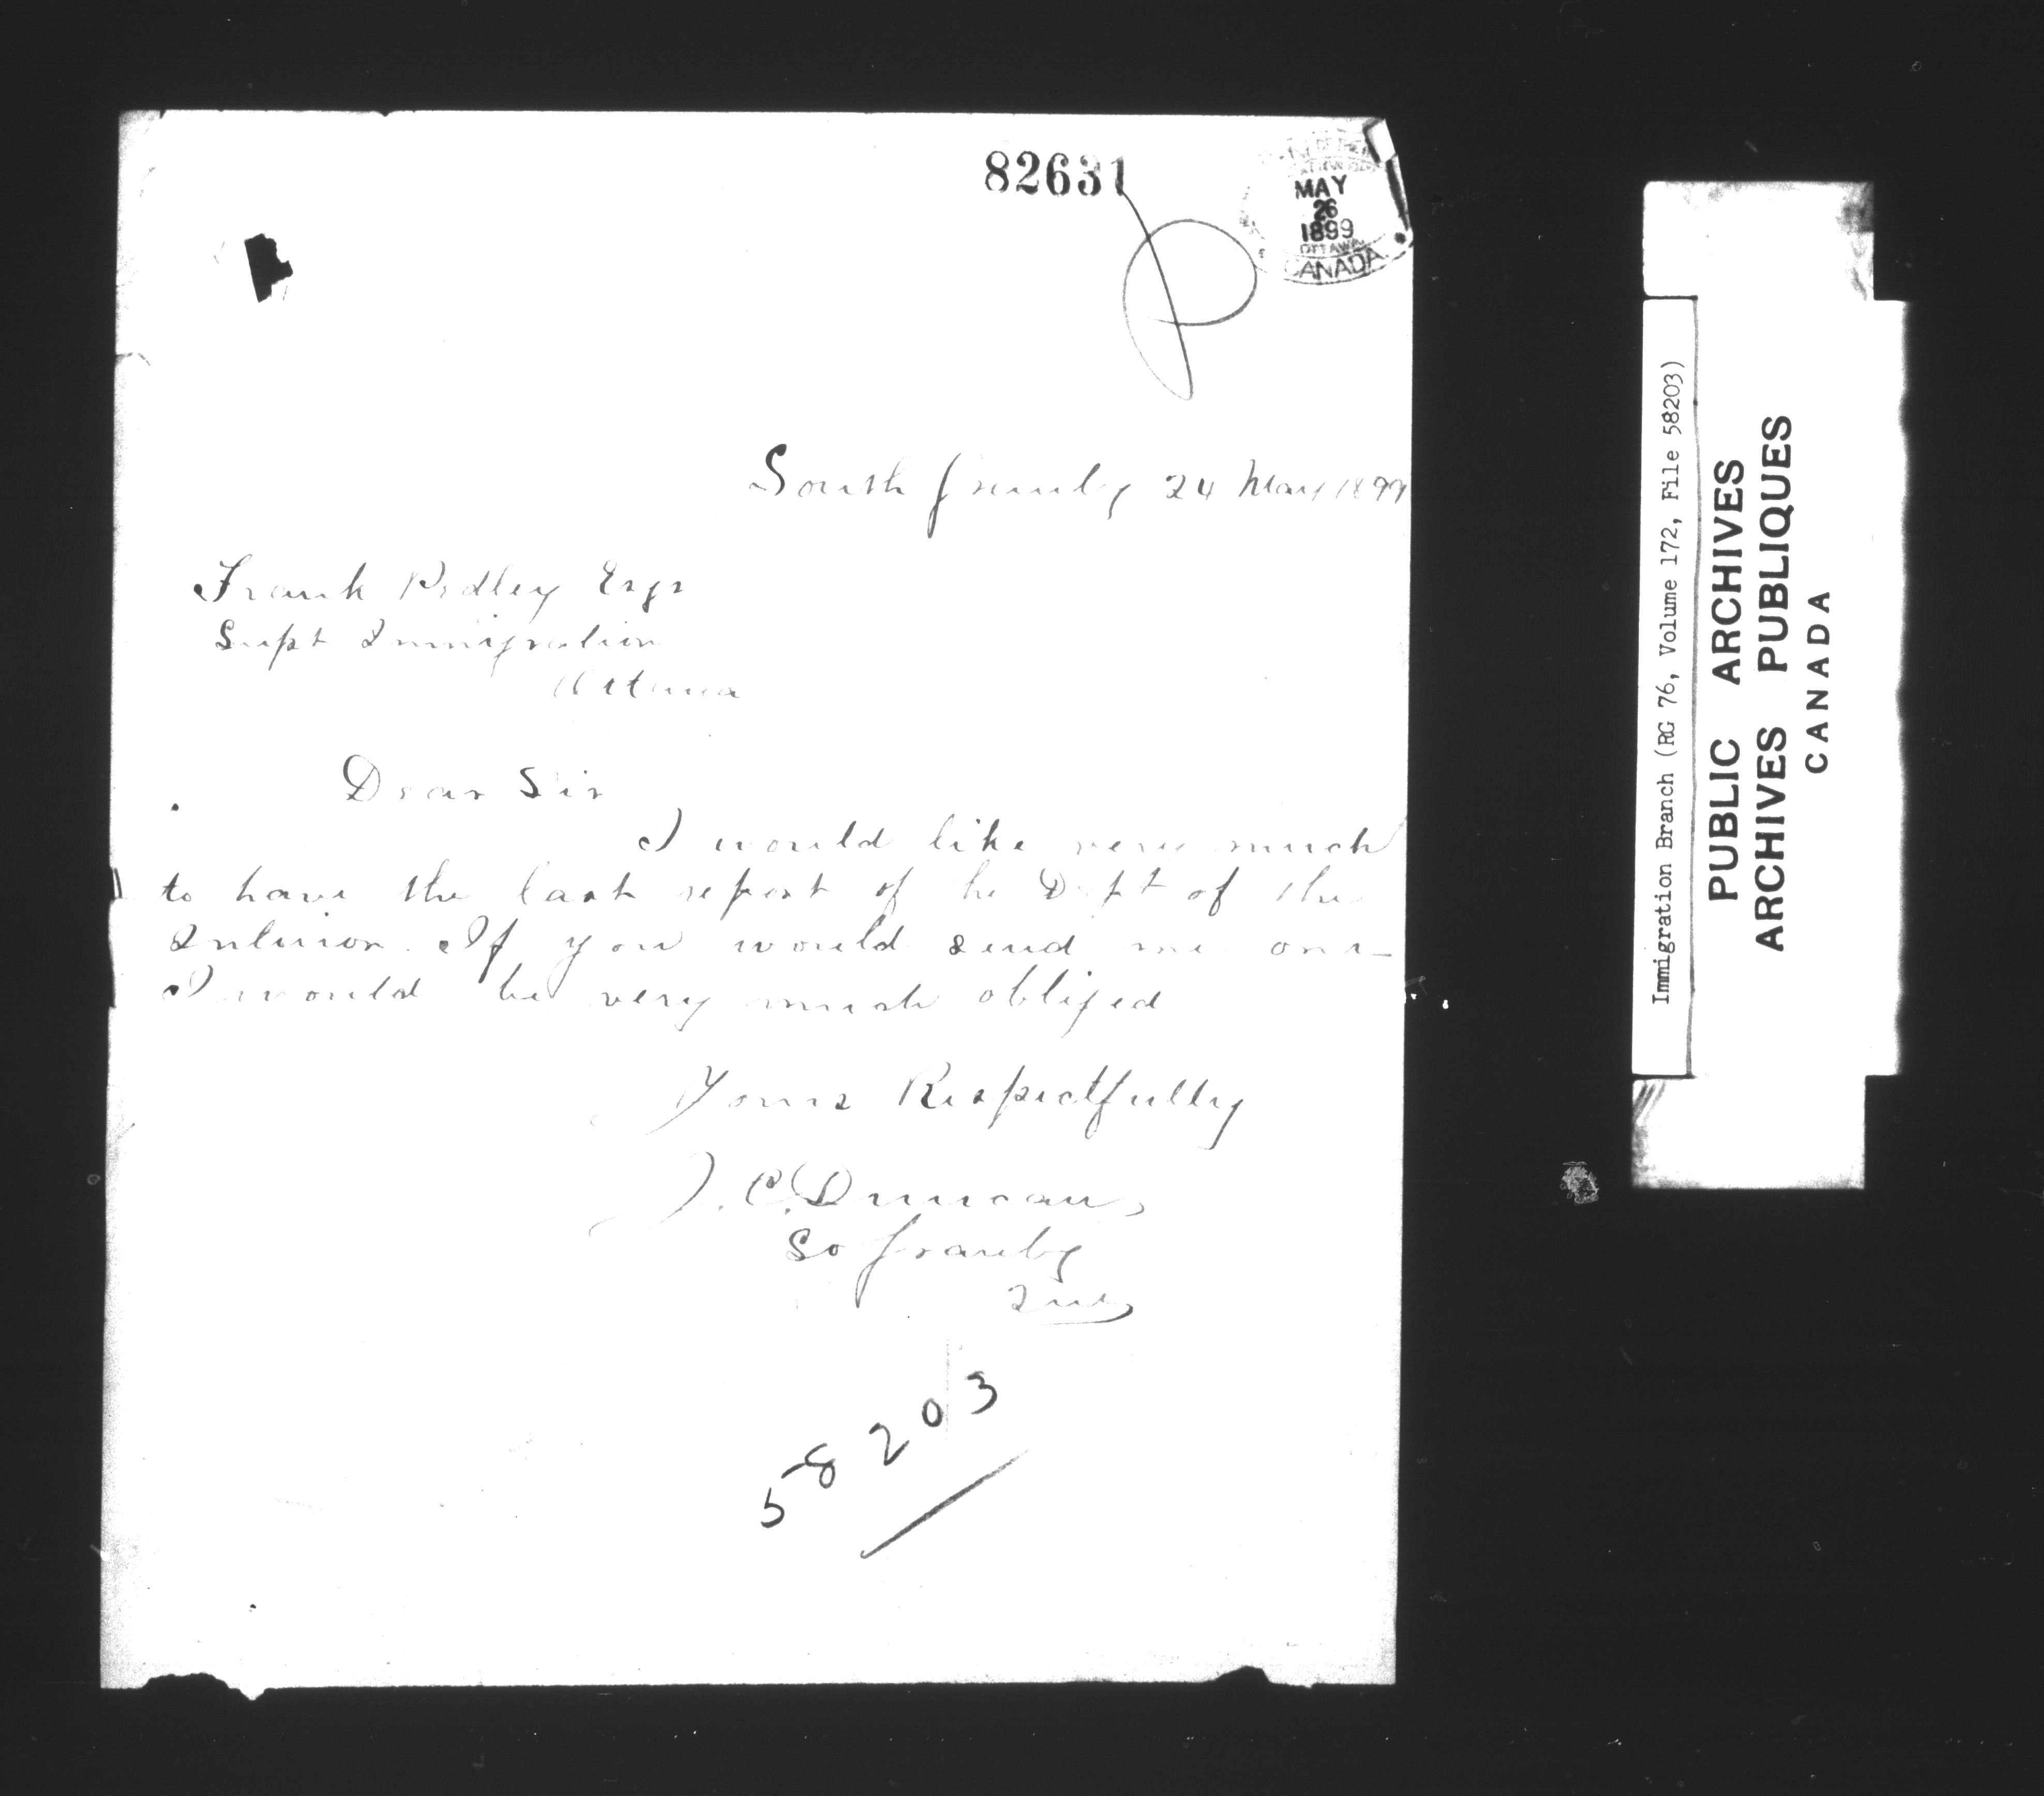 82631
MAY
26
1899
OTTAWA
CANADA
South Granby 24 May 1899
Frank Pedley Esqr
Supt Immigration
Ottawa
Dear Sir
I would like very much
to have the last report of the Dept of the
Interior. If you would send me one
I would be very much obliged
Yours Respectfully
J. C. Duncan,
So Granby
Que
58203
Immigration Branch (RG 76, Volume 172, File 58203)
PUBLIC ARCHIVES
ARCHIVES PUBLIQUES
CANADA